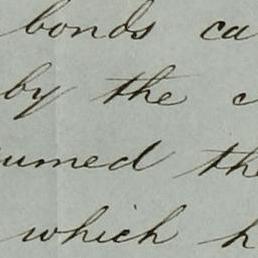 bonds ca
by the
umed the
which h